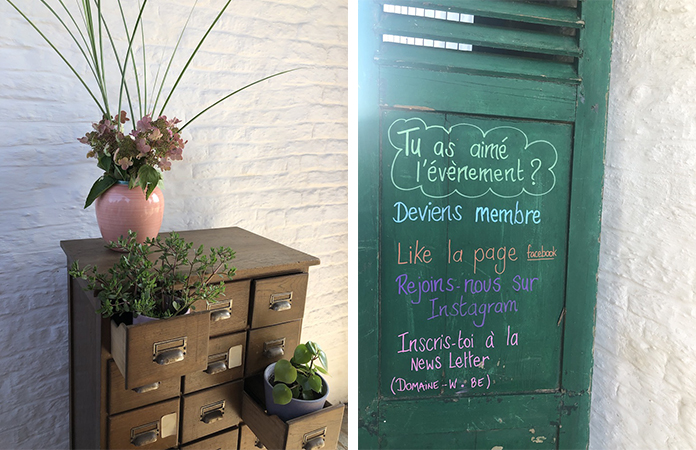 Tu as aimé
l'évènement ?
Deviens membre
Like la page facebook
Rejoins-nous sur
Instagram
Inscris-toi à la
News Letter
(Domaine-W.BE)